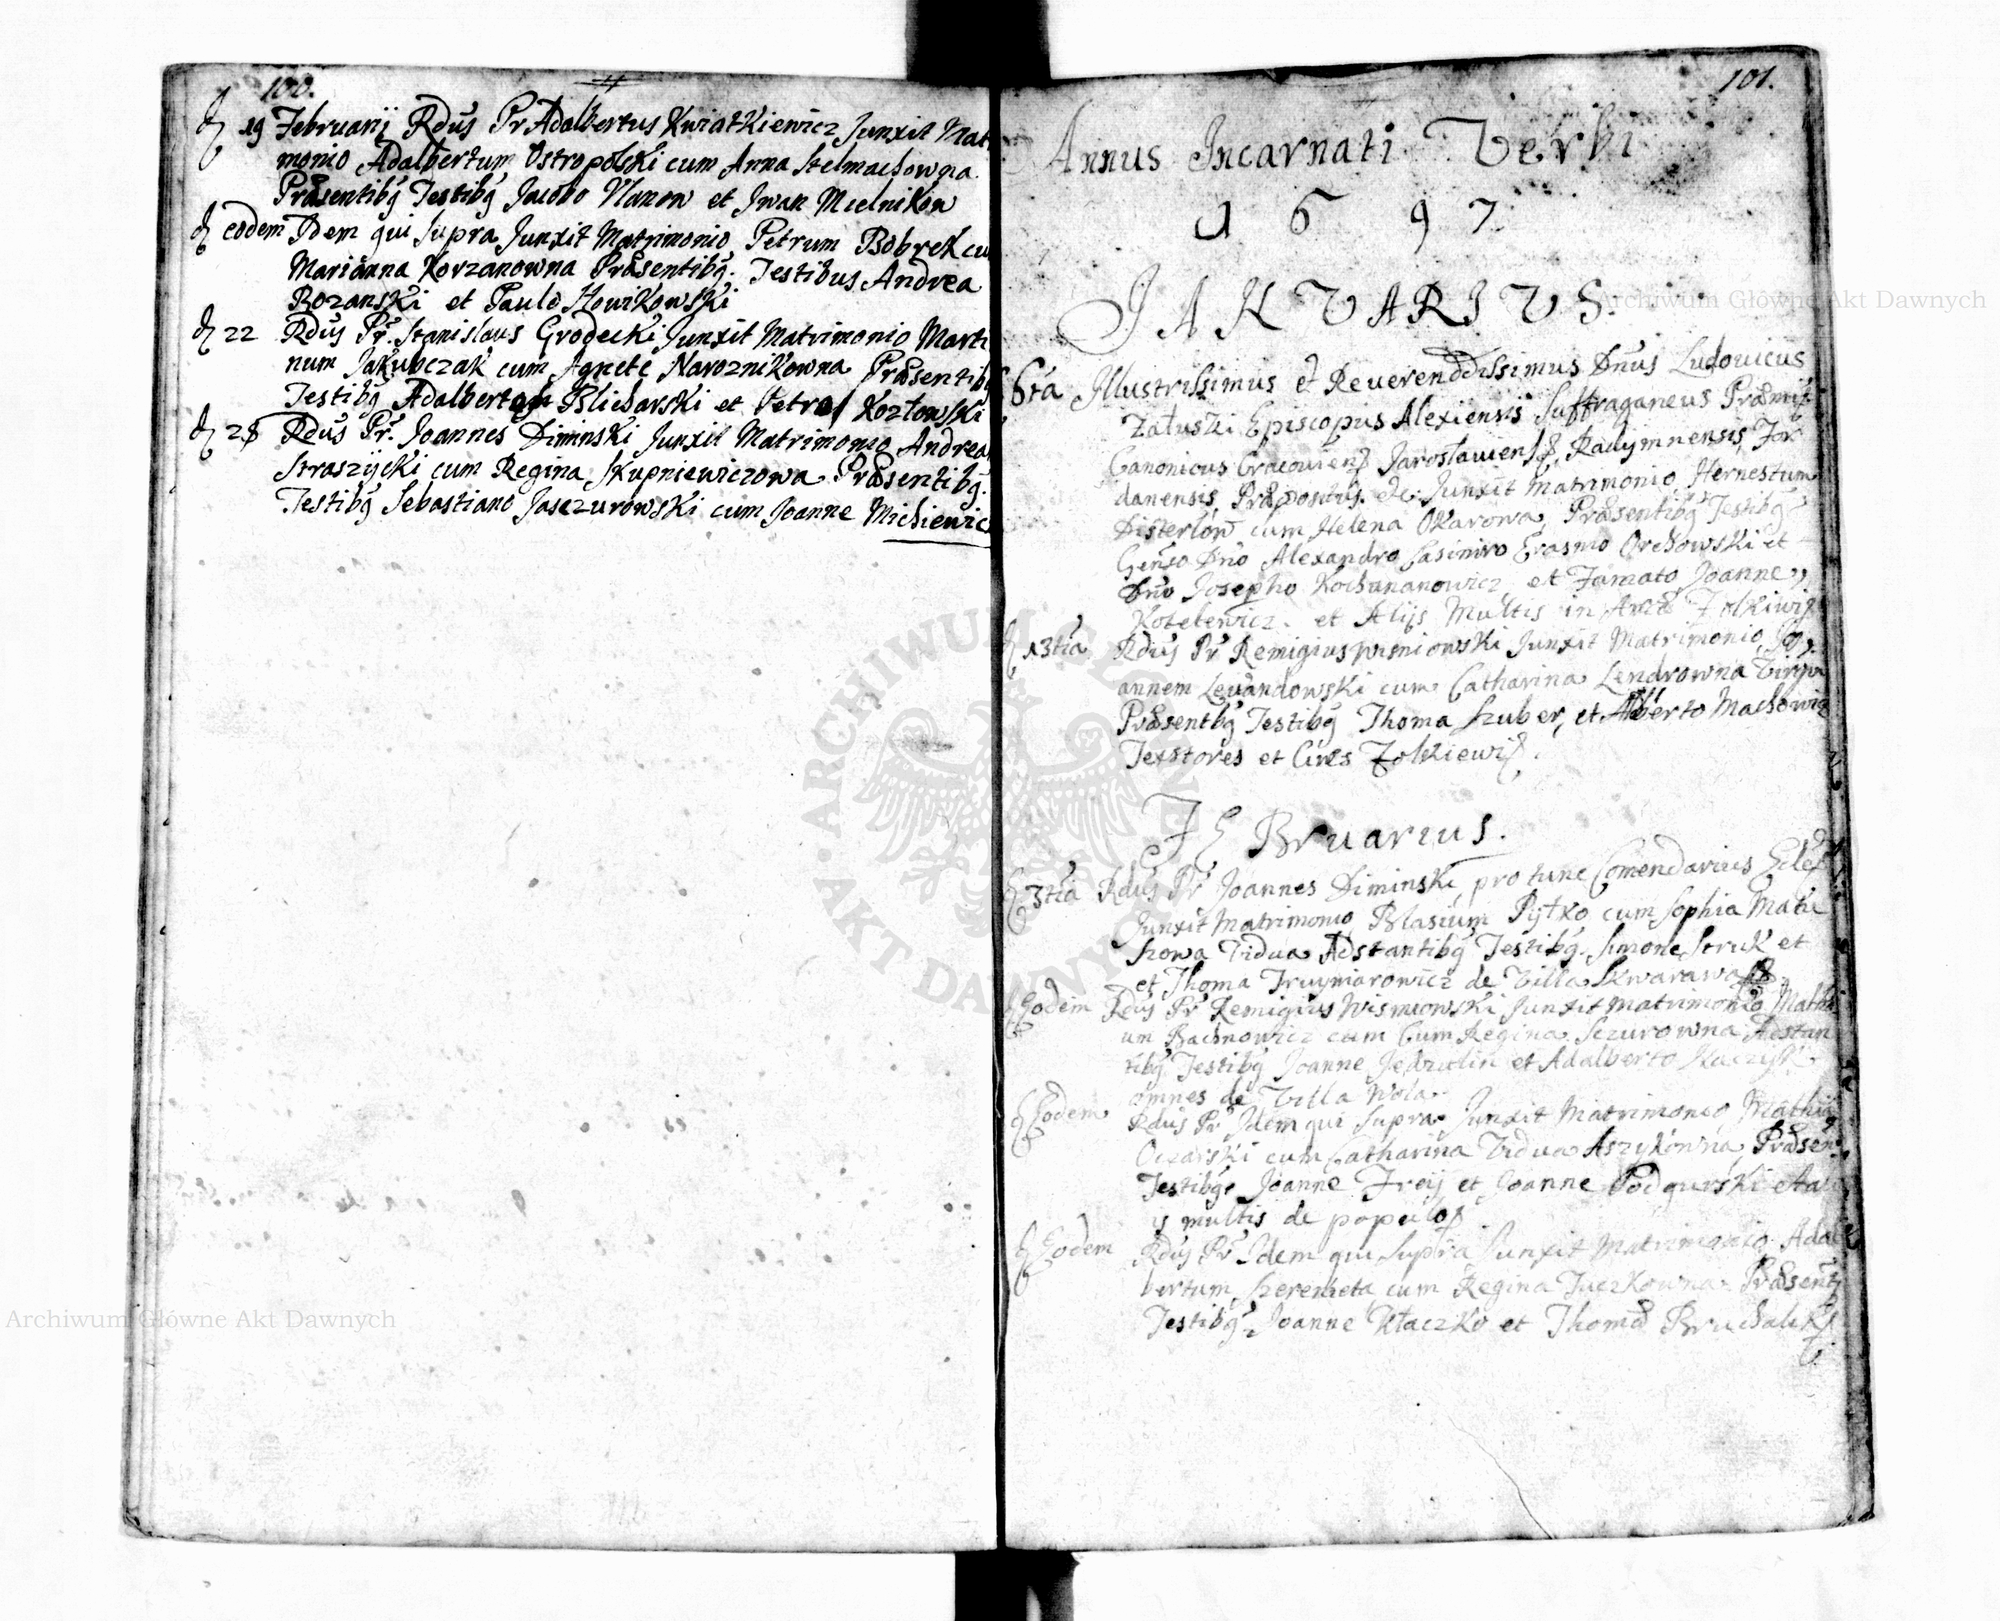 100.
D 19 Februarij Rdus Pr Adalbertus Kwiatkiewicz Junxit Mat
monio Adalbertum Ostropolski cum Anna Stelmachowna
Præsentibq Testibq Jacobo Vlanow et Jwan Mielnikow
D eodem Idem qui Supra Junxit Matrimonio Petrum Bobrek cu
Marianna Korzanowna Præsentibq. Testibus Andrea
Bozanski et Paulo Howikowski
D 22 Rdus Pr. Stanislaus Grodecki Junxit Matrimonio Marti
num Jakubczak cum Agnete Naroznikowna Præsentibq
Testibq Adalberto Blicharski et Petro Kozłowski
D 28 Rdus Pr. Joannes Diminski Junxit Matrimonio Andrea
Straszycki cum Regina Skupniewiczowa Præsentibq.
Testibq Sebastiano Jasczurowski cum Joanne Michiewic
101.
Annus Incarnati Verbi
1 6 9 7
JANVARIVS.
6ta Illustrissimus et Reuerenddissimus Dnus Ludouicus
Załuski Episcopus Alexiensis Suffraganeus Præmis
Canonicus Cracouiens Jarosłauiens, Radymnensis, Jor
danensis, Præpositus. etc. Junxit Matrimonio Hernestum
Disterlow cum Helena Okarowa, Præsentibq Testibq
Genso Dno Alexandro Casimiro Erasmo Orchowski et
Dno Josepho Kochananowicz et Famato Joanne
Kotelewicz. et Alijs Multis in Arce Zolkiwis
D 13tia Rdus Pr Remigius Wisniowski Junxit Matrimonio, Jo
annem Lewandowski cum Catharina Lendrowna Virgin
Præsentbq Testibq Thoma Szuber, et Alberto Machowicz
Textores et Cives Zolkiewis.
FEBruarius.
D 3tia Rdus Pr Joannes Diminski, pro tunc Comendarius Ecles
Junxit Matrimonio Blasium Pytko cum Sophia Matu
szowa Vidua Adstantibq Testibq. Simone Struk et
et Thoma de Villa Skwarawa
D Eodem Rdus Pr Remigius Wisniowski Junxit Matrimonio Math
um Bachnowicz cum Cum Regina Sczurowna Adstan
tibq Testibq Joanne et Adalberto
omnes de Villa Wola
D Eodem Rdus Pr Idem qui Supra Junxit Matrimonio Mathia
Oczarski cum Catharina Vidua Aszykowna Præsen
Testibq. Joanne Freij et Joanne Podgurski et al
ys multis de populo
D Eodem Rdus Pr Idem qui Supra Junxit Matrimonio Adal
bertum Szeremeta cum Regina Tuczkowna Præsenti
Testibq. Joanne Kłaczko et Thoma Bruchalski
Archiwum Główne Akt Dawnych
Archiwum Główne Akt Dawnych
ARCHIWUM GŁÓWNE · AKT DAWNYCH ·